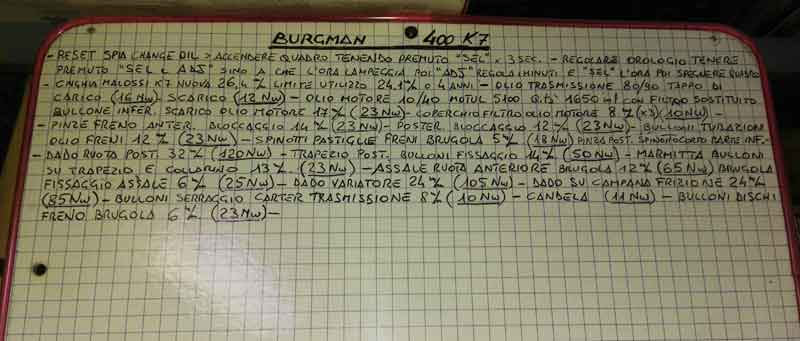 BURGMAN 400 K7
- RESET SPIA CHANGE OIL > ACCENDERE QUADRO TENENDO PREMUTO "SEL" x 3 SEC. - REGOLARE OROLOGIO TENERE
PREMUTO "SEL e ADJ" SINO A CHE L'ORA LAMPEGGIA POI "ADJ" REGOLA I MINUTI E "SEL" L'ORA POI SPEGNERE QUADRO
- CINGHIA MALOSSI K7 NUOVA 26,4 % LIMITE UTILIZZO 24,1 % O 4 ANNI - OLIO TRASMISSIONE 80/90 TAPPO DI
CARICO (16 NW) SCARICO (12 NW) - OLIO MOTORE 10/40 MOTUL 5100 Q.tà 1650 ml CON FILTRO SOSTITUITO
BULLONE INFER. SCARICO OLIO MOTORE 17 % (23 NW) - COPERCHIO FILTRO OLIO MOTORE 8 % (x3) (10 NW) -
- PINZE FRENO ANTER. BLOCCAGGIO 14 % (23 NW) - POSTER. BLOCCAGGIO 12 % (23 NW) - BULLONI TUBAZIONI
OLIO FRENI 12 % (23 NW) - SPINOTTI PASTIGLIE FRENI BRUGOLA 5 % (18 NW) PINZA POST. SPINOTTO CORTO PARTE INF. -
- DADO RUOTA POST. 32 % (120 NW) - TRAPEZIO POST. BULLONI FISSAGGIO 14 % (50 NW) - MARMITTA BULLONI
SU TRAPEZIO E COLLARINO 13 % (23 NW) - ASSALE RUOTA ANTERIORE BRUGOLA 12 % (65 NW) BRUGOLA
FISSAGGIO ASSALE 6 % (25 NW) - DADO VARIATORE 24 % (105 NW) - DADO SU CAMPANA FRIZIONE 24 %
(85 NW) - BULLONI SERRAGGIO CARTER TRASMISSIONE 8 % (10 NW) - CANDELA (11 NW) - BULLONI DISCHI
FRENO BRUGOLA 6 % (23 NW) -